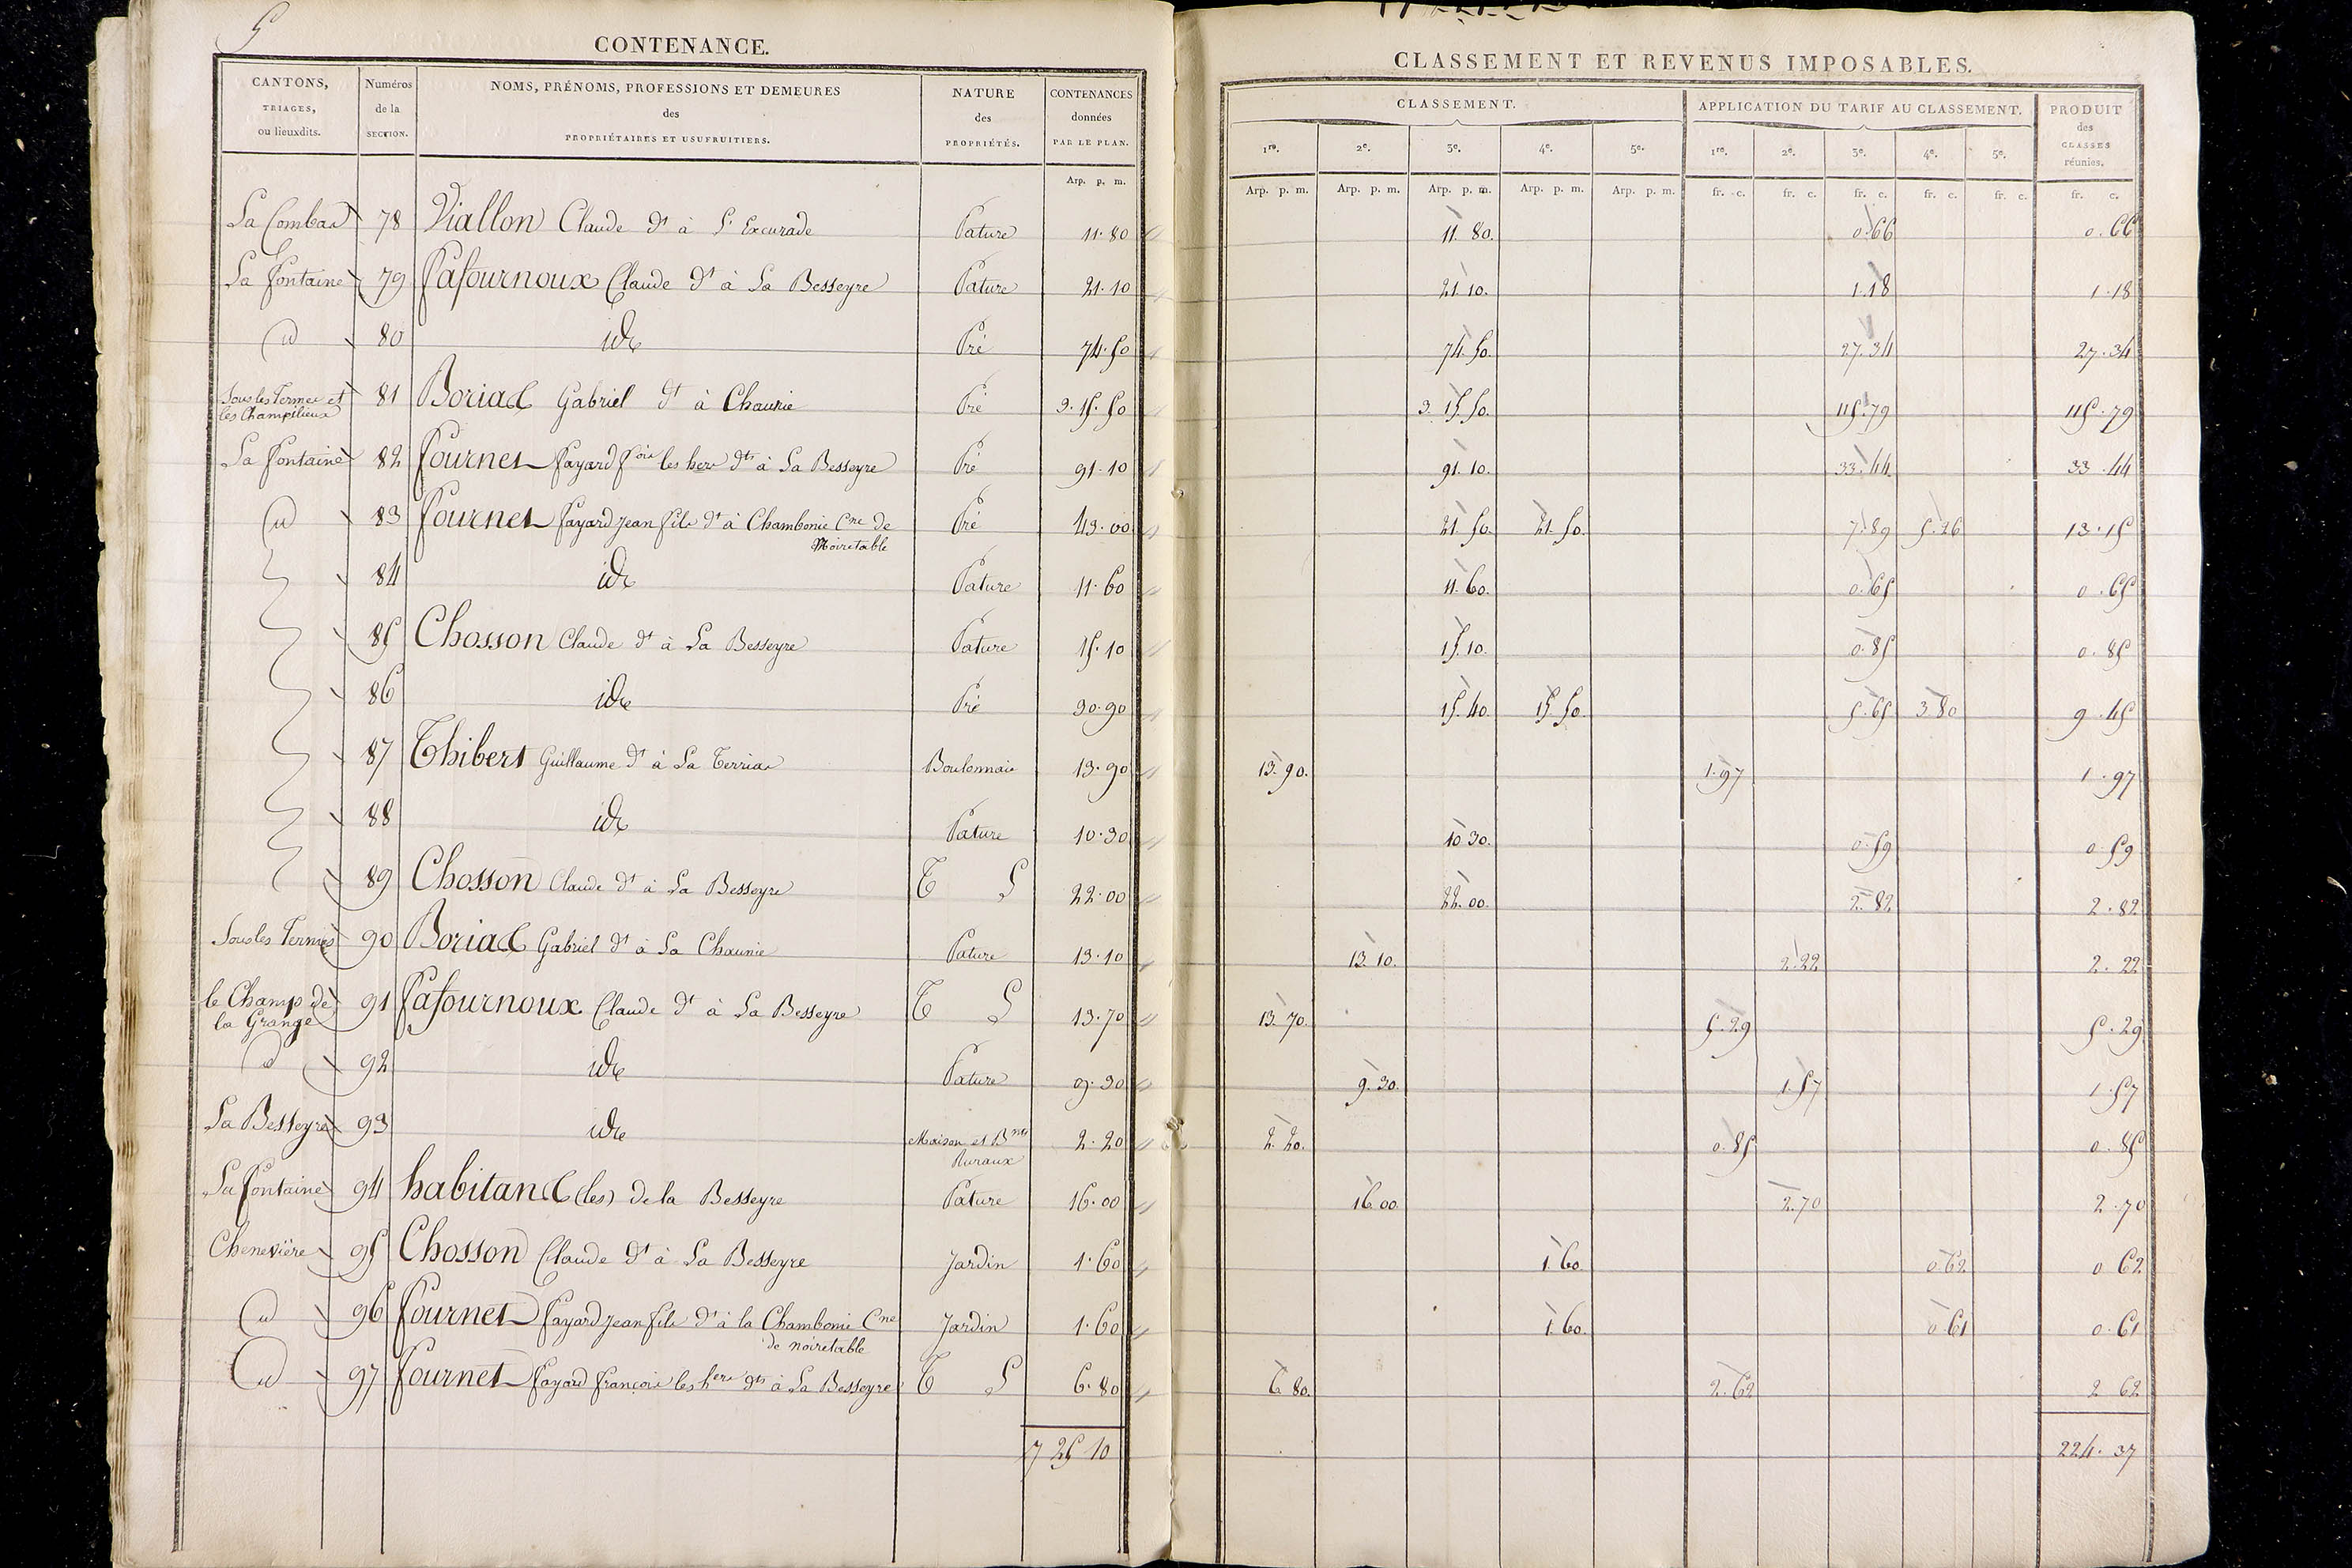 5
CONTENANCE.
CANTONS, TRIAGES, ou lieuxdits.
Numéros de la SECTION.
NOMS, PRÉNOMS, PROFESSIONS ET DEMEURES des PROPRIÉTAIRES ET USUFRUITIERS.
NATURE des PROPRIÉTÉS.
CONTENANCES données PAR LE PLAN.
Arp. p. m.
CLASSEMENT ET REVENUS IMPOSABLES.
CLASSEMENT.
APPLICATION DU TARIF AU CLASSEMENT.
PRODUIT des CLASSES réunies.
1re. 2e. 3e. 4e. 5e. 1re. 2e. 3e. 4e. 5e.
Arp. p. m. Arp. p. m. Arp. p. m. Arp. p. m. Arp. p. m. fr. c. fr. c. fr. c. fr. c. fr. c. fr. c.
La Combas 78 Viallon Claude dt à Pature 11.80 11.80. 0.66 0.66
La fontaine 79 Pafournoux Claude dt à La Besseyre Pature 21.10 21.10. 1.18 1.18
id 80 ide Pré 74.50 74.50. 27.34 27.34
Sous les Termes et les Champélieux 81 Boriad Gabriel dt à Chaunie Pré 3.15.50 3.15.50. 115.79 115.79
La fontaine 82 fournet fayard fois les hers dts à La Besseyre Pré 91.10 91.10. 33.44 33.44
id 83 fournet fayard jean fils dt à Chambonie Cne de Noiretable Pré 43.00 21.50. 21.50. 7.89 5.26 13.15
84 ide Pature 11.60 11.60. 0.65 0.65
85 Chosson Claude dt à La Besseyre Pature 15.10 15.10. 0.85 0.85
86 ide Pré 30.90 15.40. 15.50. 5.65 3.80 9.45
87 Thibert Guillaume dt à La Terrias Boulonnais 13.90 13.90. 1.97 1.97
88 ide Pature 10.30 10.30. 0.59 0.59
89 Chosson Claude dt à La Besseyre T L 22.00 22.00. 2.82 2.82
Sous les Termes 90 Boriad Gabriel dt à La Chaunie Pature 13.10 13.10. 2.22 2.22
le Champ de la Grange 91 Pafournoux Claude dt à La Besseyre T L 13.70 13.70. 5.29 5.29
d 92 ide Pature 9.30 9.30. 1.57 1.57
La Besseyre 93 ide Maison et Bnts Ruraux 2.20 2.20. 0.85 0.85
La fontaine 94 habitand (les) de la Besseyre Pature 16.00 16.00 2.70 2.70
Chenevière 95 Chosson Claude dt à La Besseyre Jardin 1.60 1.60 0.62 0 62
id 96 fournet fayard jean fils dt à la Chambonie Cne de noiretable Jardin 1.60 1.60. 0.61 0.61
id 97 fournet fayard françois les hers dts à La Besseyre T L 6.80 6.80. 2.62 2 62
7 25 10 224.37